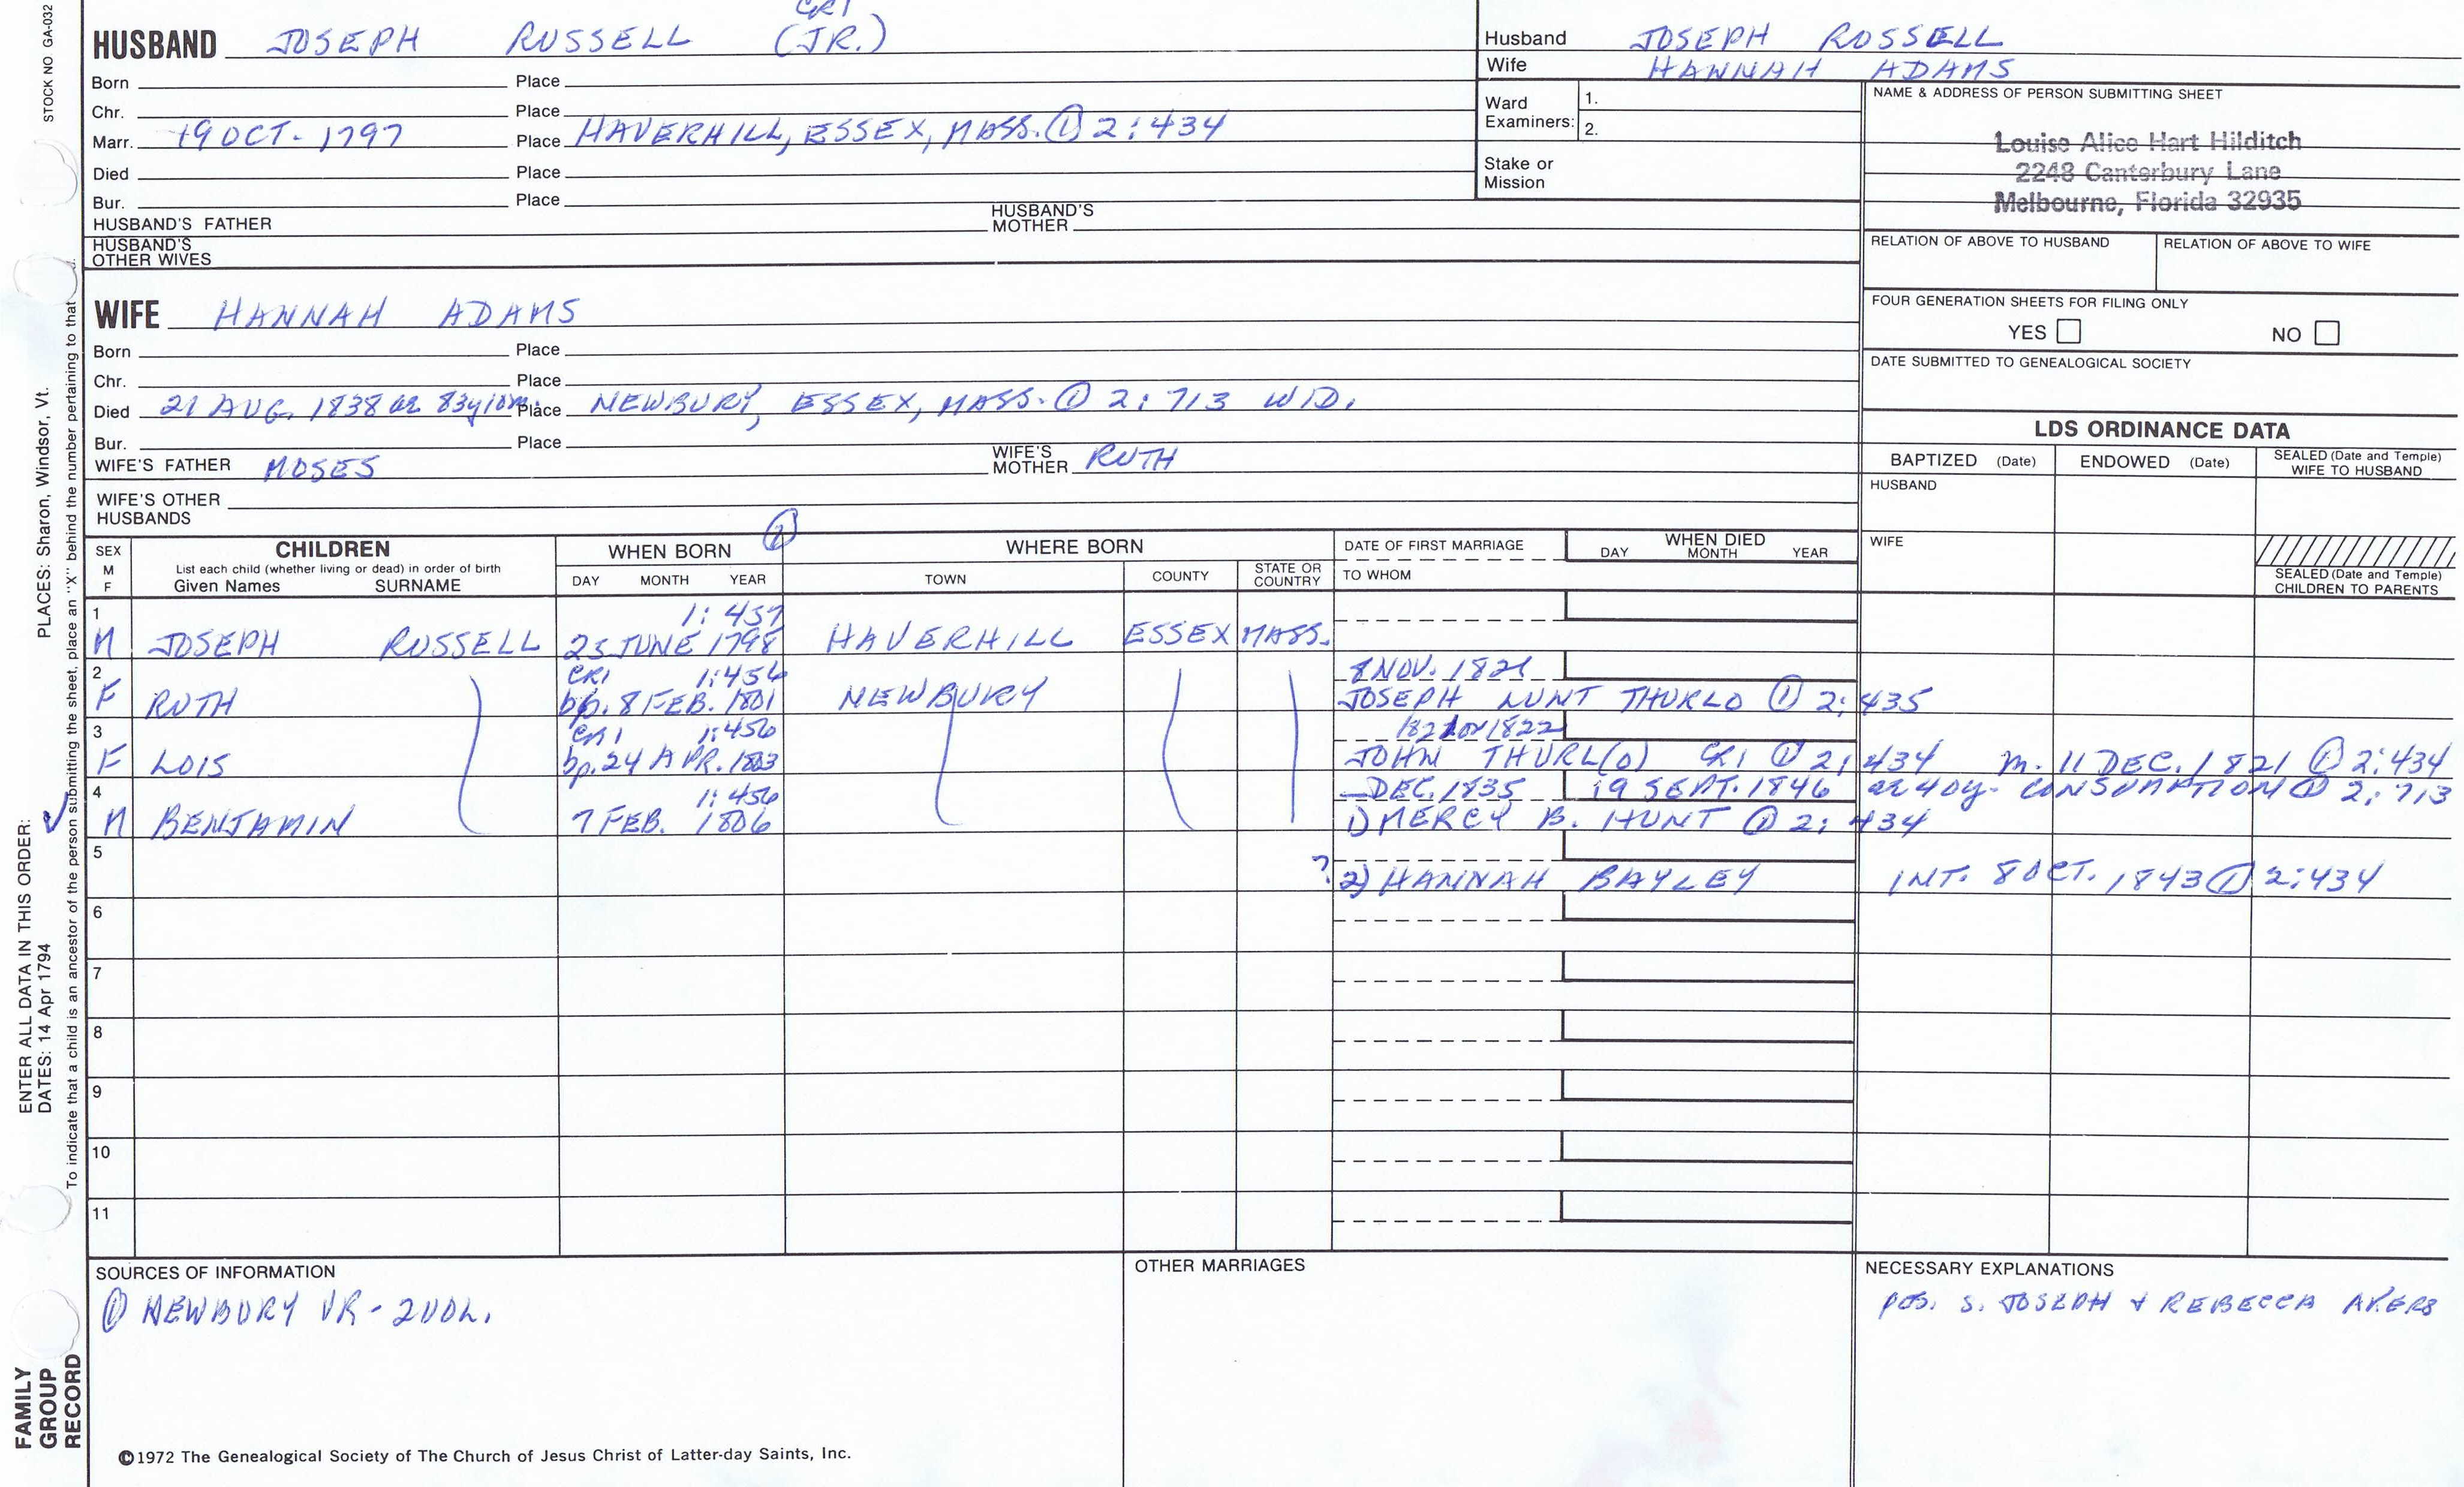 STOCK NO. GA-032
CR1
HUSBAND JOSEPH RUSSELL (JR.)
Born Place
Chr. Place
Marr. 19 OCT. 1797 Place HAVERHILL, ESSEX, MASS. ① 2:434
Died Place
Bur. Place
HUSBAND'S FATHER HUSBAND'S MOTHER
HUSBAND'S OTHER WIVES
Husband JOSEPH RUSSELL
Wife HANNAH ADAMS
Ward Examiners: 1.
2.
Stake or Mission
NAME & ADDRESS OF PERSON SUBMITTING SHEET
Louise Alice Hart Hilditch
2248 Canterbury Lane
Melbourne, Florida 32935
RELATION OF ABOVE TO HUSBAND RELATION OF ABOVE TO WIFE
FOUR GENERATION SHEETS FOR FILING ONLY
YES NO
DATE SUBMITTED TO GENEALOGICAL SOCIETY
WIFE HANNAH ADAMS
Born Place
Chr. Place
Died 21 AUG. 1838 ae 83y10m. Place NEWBURY, ESSEX, MASS. ① 2:713 WID.
Bur. Place
WIFE'S FATHER MOSES WIFE'S MOTHER RUTH
WIFE'S OTHER HUSBANDS
LDS ORDINANCE DATA
BAPTIZED (Date) ENDOWED (Date) SEALED (Date and Temple) WIFE TO HUSBAND
HUSBAND
WIFE
SEALED (Date and Temple) CHILDREN TO PARENTS
SEX M F
CHILDREN
List each child (whether living or dead) in order of birth
Given Names SURNAME
WHEN BORN ①
DAY MONTH YEAR
WHERE BORN
TOWN COUNTY STATE OR COUNTRY
DATE OF FIRST MARRIAGE
TO WHOM
WHEN DIED
DAY MONTH YEAR
1 1:457
M JOSEPH RUSSELL 25 JUNE 1798 HAVERHILL ESSEX MASS.
2 CR1 1:456 8 NOV. 1821
F RUTH bp. 8 FEB. 1801 NEWBURY JOSEPH LUNT THURLO ① 2:435
3 CR1 1:456 1821 or 1822
F LOIS bp. 24 APR. 1803 JOHN THURL(O) CR1 ① 2:434 m. 11 DEC. 1821 ① 2:434
4 1:456 — DEC. 1835 19 SEPT. 1846 ae 40y. CONSUMPTION ① 2:713
M BENJAMIN 7 FEB. 1806 1) MERCY B. HUNT ① 2:434
5 ? 2) HANNAH BAYLEY INT. 8 OCT. 1843 ① 2:434
6
7
8
9
10
11
SOURCES OF INFORMATION
① NEWBURY VR - 2 VOL.
OTHER MARRIAGES
NECESSARY EXPLANATIONS
POS. S. JOSEPH + REBECCA AKERS
©1972 The Genealogical Society of The Church of Jesus Christ of Latter-day Saints, Inc.
FAMILY
GROUP
RECORD
ENTER ALL DATA IN THIS ORDER:
DATES: 14 Apr 1794 PLACES: Sharon, Windsor, Vt.
To indicate that a child is an ancestor of the person submitting the sheet, place an "X" behind the number pertaining to that